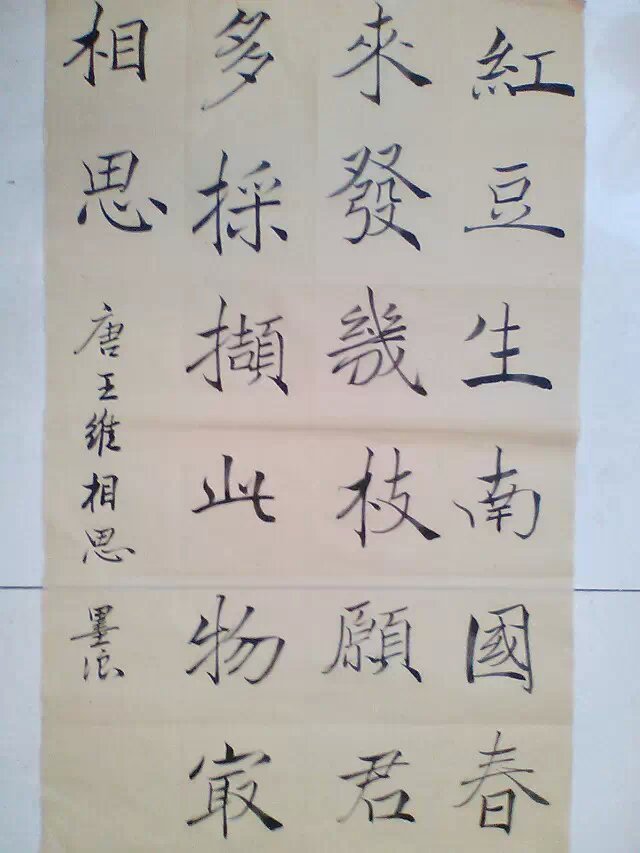 紅豆生南國春
來發幾枝願君
多採擷此物㝡
相思
唐王維相思 墨浪